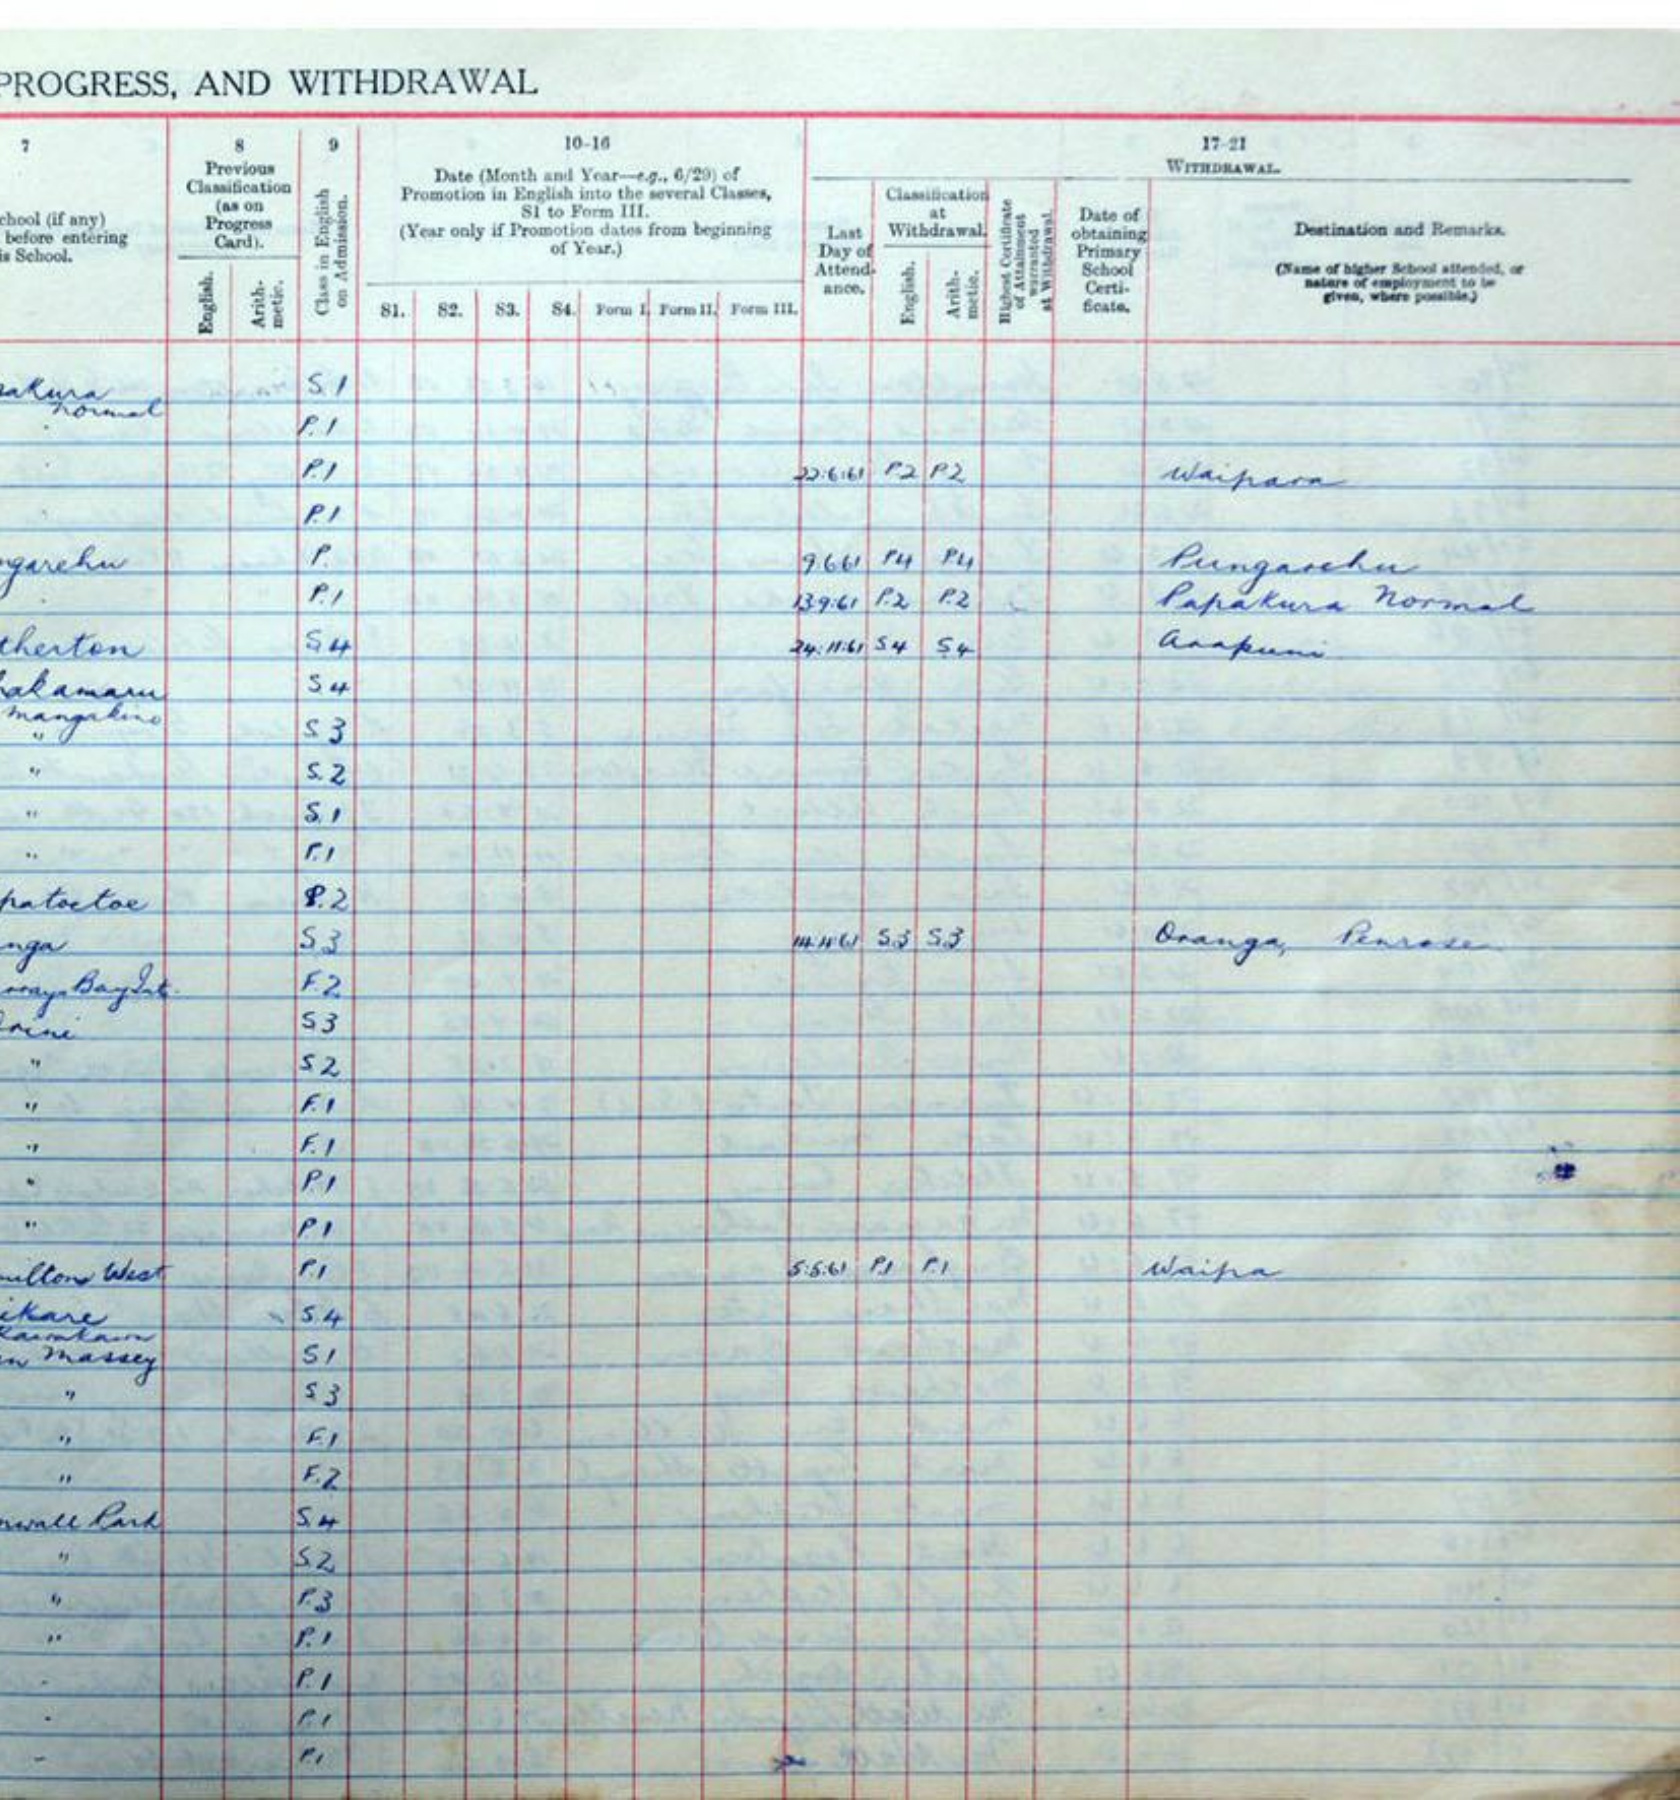 PROGRESS, AND WITHDRAWAL
7
8
9
10-16
17-21
WITHDRAWAL.
chool (if any)
before entering
is School.
Previous
Classification
(as on
Progress
Card).
English.
Arith-
metic.
Class in English
on Admission.
Date (Month and Year—e.g., 6/29) of
Promotion in English into the several Classes,
S1 to Form III.
(Year only if Promotion dates from beginning
of Year.)
S1. S2. S3. S4. Form I. Form II. Form III.
Last
Day of
Attend-
ance.
Classification
at
Withdrawal.
English.
Arith-
metic.
Highest Certificate
of Attainment
warranted
at Withdrawal.
Date of
obtaining
Primary
School
Certi-
ficate.
Destination and Remarks.
(Name of higher School attended, or
nature of employment to be
given, where possible.)
akura S.1
normal
P.1
P.1 22:6:61 P2 P2 Waipara
P.1
ngarehu P. 9.6.61 P4 P4 Pungarehu
P.1 13.9.61 P.2 P.2 Papakura Normal
therton S4 24:11:61 S4 S4 Arapuni
akamaru S4
Mangakino
" S3
" S.2
" S.1
" P.1
patoetoe P.2
nga S3 14.11.61 S3 S3 Oranga, Penrose
rrays Bay Int. F.2
S3
" S2
" F.1
" F.1
" P.1
" P.1
milton West P.1 5:5:61 P.1 P.1 Waipa
ikare S.4
Kawakawa
n Massey S1
" S3
" F.1
" F.2
nwall Park S.4
" S2
" P.3
" P.1
- P.1
- P.1
- P.1